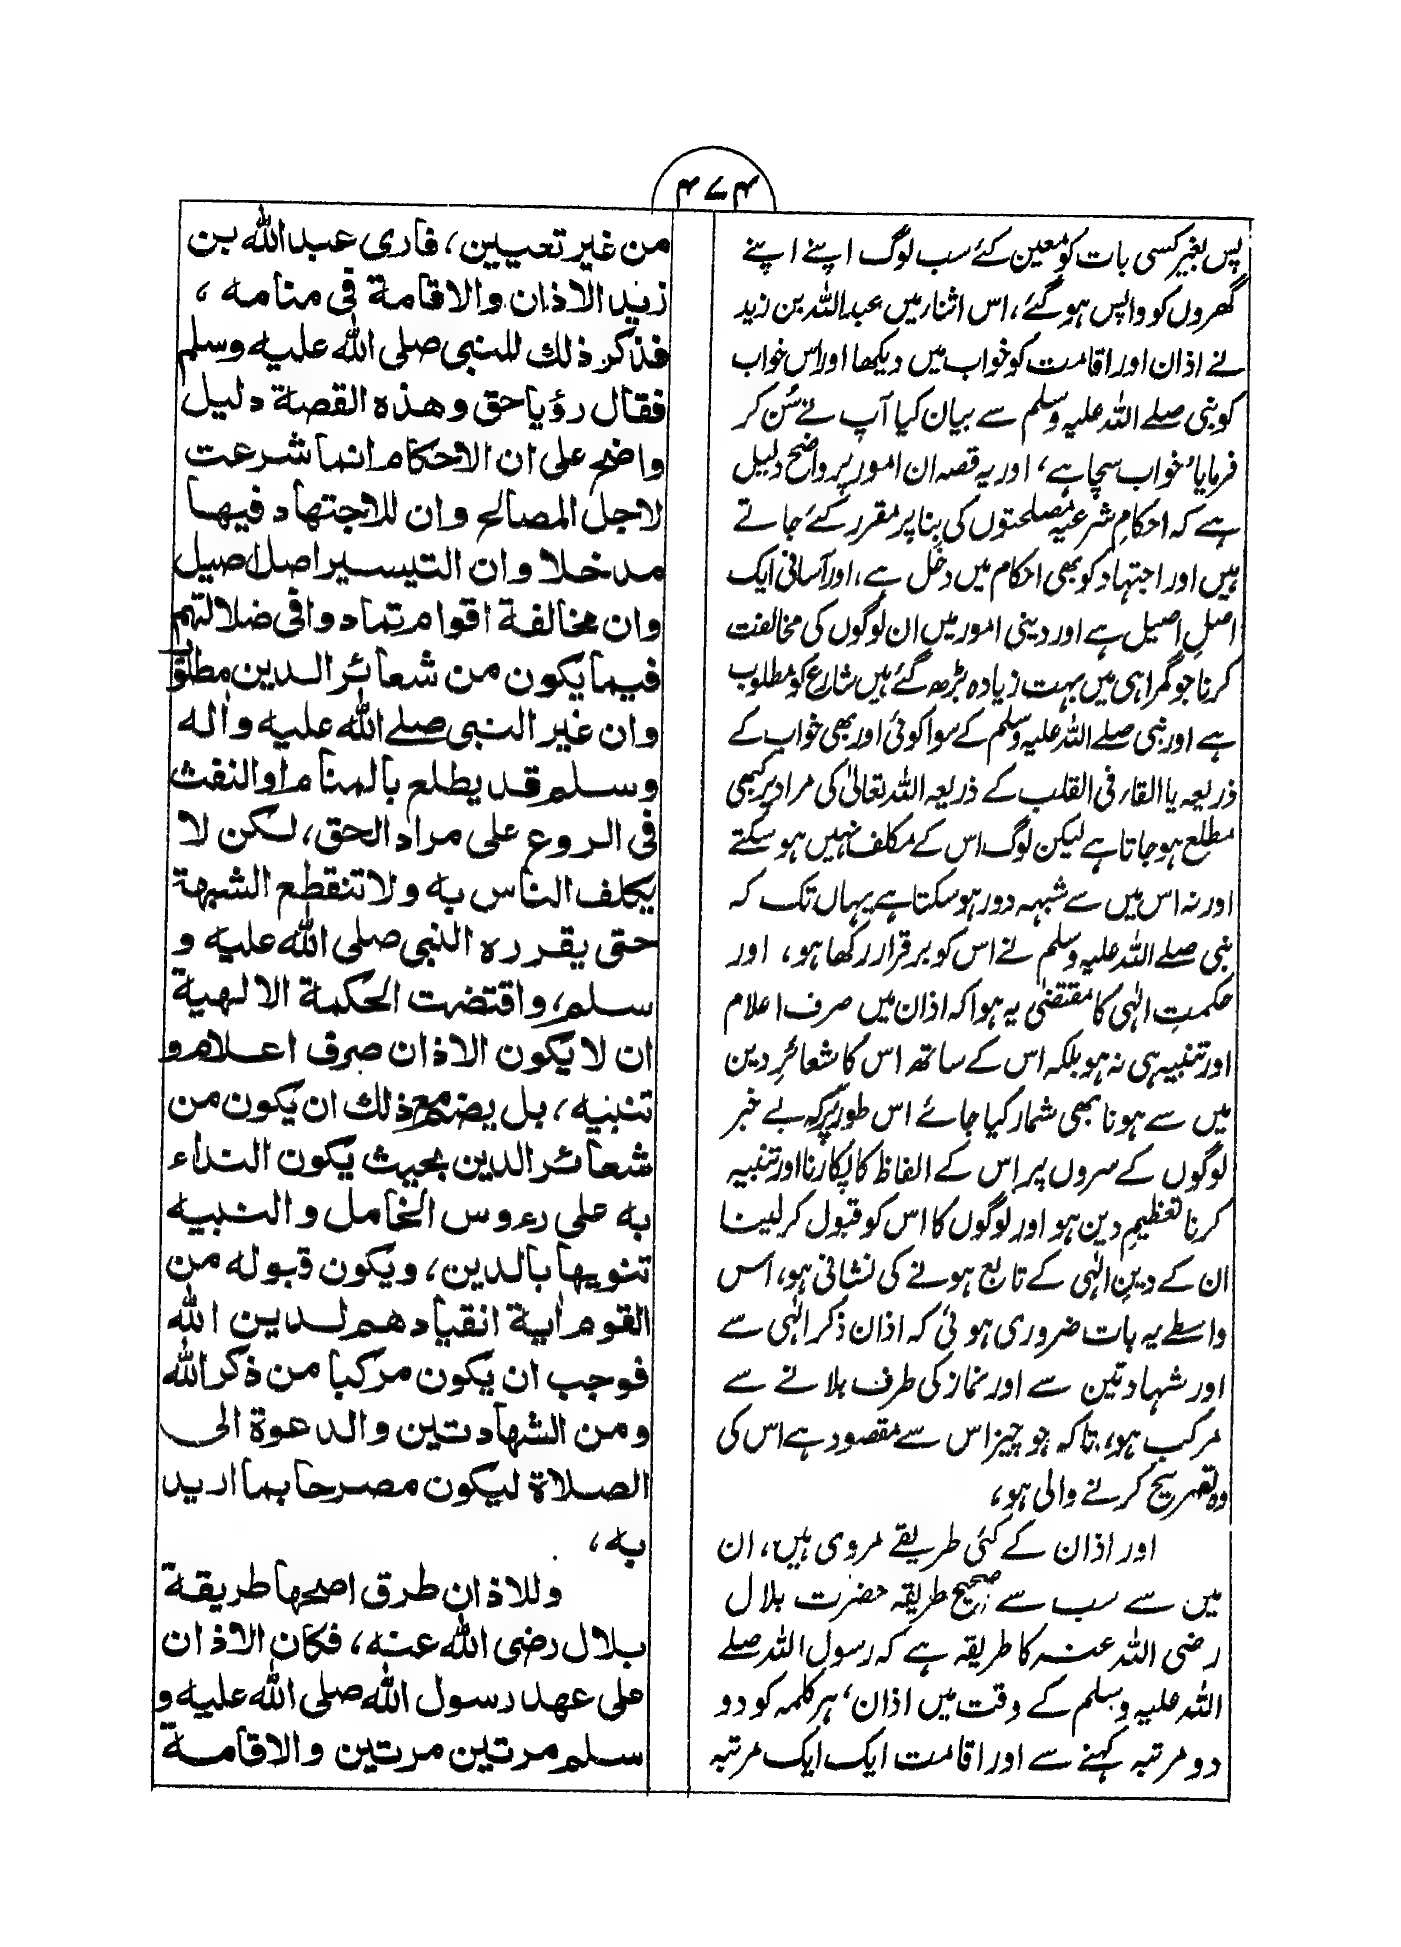 ۴۷۴
پس بغیر کسی بات کو معین کئے سب لوگ اپنے اپنے
گھروں کو واپس ہو گئے، اس اثنار میں عبداللہ بن زید
نے اذان اور اقامت کو خواب میں دیکھا اور اس خواب
کو نبی صلے اللہ علیہ وسلم سے بیان کیا آپ نے سُن کر
فرمایا ’خواب سچا ہے‘ اور یہ قصہ ان امور پر واضح دلیل
ہے کہ احکامِ شرعیہ مصلحتوں کی بنا پر مقرر کئے جاتے
ہیں اور اجتہاد کو بھی احکام میں دخل ہے، اور آسانی ایک
اصلِ اصیل ہے اور دینی امور میں ان لوگوں کی مخالفت
کرنا جو گمراہی میں بہت زیادہ بڑھ گئے ہیں شارع کو مطلوب
ہے اور نبی صلے اللہ علیہ وسلم کے سوا کوئی اور بھی خواب کے
ذریعہ یا القار فی القلب کے ذریعہ اللہ تعالیٰ کی مراد پر کبھی
مطلع ہو جاتا ہے لیکن لوگ اس کے مکلف نہیں ہو سکتے
اور نہ اس میں سے شبہہ دور ہو سکتا ہے یہاں تک کہ
نبی صلے اللہ علیہ وسلم نے اس کو برقرار رکھا ہو، اور
حکمتِ الٰہی کا مقتضیٰ یہ ہوا کہ اذان میں صرف اعلام
اور تنبیہ ہی نہ ہو بلکہ اس کے ساتھ اس کا شعائرِ دین
میں سے ہونا بھی شمار کیا جائے اس طور پر کہ بے خبر
لوگوں کے سروں پر اس کے الفاظ کا پکارنا اور تنبیہ
کرنا تعظیمِ دین ہو اور لوگوں کا اس کو قبول کر لینا
ان کے دینِ الٰہی کے تابع ہونے کی نشانی ہو، اس
واسطے یہ بات ضروری ہوئی کہ اذان ذکر الٰہی سے
اور شہادتین سے اور نماز کی طرف بلانے سے
مرکب ہو، تاکہ جو چیز اس سے مقصود ہے اس کی
وہ تصریح کرنے والی ہو،
اور اذان کے کئی طریقے مروی ہیں، ان
میں سے سب سے صحیح طریقہ حضرت بلال
رضی اللہ عنہ کا طریقہ ہے کہ رسول اللہ صلے
اللہ علیہ وسلم کے وقت میں اذان، ہر کلمہ کو دو
دو مرتبہ کہنے سے اور اقامت ایک ایک مرتبہ
من غير تعيين، فارى عبد الله بن
زيد الاذان والاقامة فى منامه،
فذكر ذلك للنبى صلى الله عليه وسلم
فقال رؤيا حق وهذه القصة دليل
واضح على ان الاحكام انما شرعت
لاجل المصالح وان للاجتهاد فيها
مدخلا وان التيسير اصل اصيل
وان مخالفة اقوام تمادوا فى ضلالتهم
فيما يكون من شعائر الدين مطلوب
وان غير النبى صلے الله عليه وأله
وسلم قد يطلع بالمنام او النفث
فى الروع على مراد الحق، لكن لا
يكلف الناس به ولا تنقطع الشبهة
حتى يقرره النبى صلى الله عليه و
سلم، واقتضت الحكمة الالهية
ان لا يكون الاذان صرف اعلام و
تنبيه، بل يضم مع ذلك ان يكون من
شعائر الدين بحيث يكون النداء
به على رءوس الخامل والنبيه
تنويها بالدين، ويكون قبوله من
القوم أية انقيادهم لدين الله
فوجب ان يكون مركبا من ذكر الله
ومن الشهادتين والدعوة الى
الصلاة ليكون مصرحا بما اريد
به،
وللاذان طرق اصحها طريقة
بلال رضى الله عنه، فكان الاذان
على عهد رسول الله صلى الله عليه و
سلم مرتين مرتين والاقامة